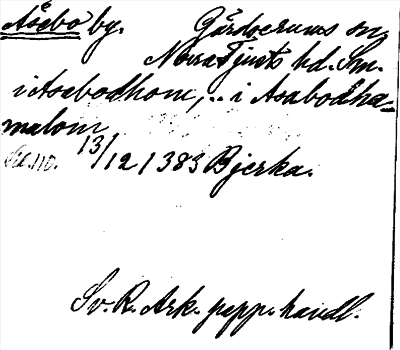 Åsebo by. Gärdserums sn
Norra Tjusts hd. Sm.
i Asabodhom, .. i Asabodha-
malom
13/12 1383 Bjerka.
Sv. R. Ark. papp. handl.